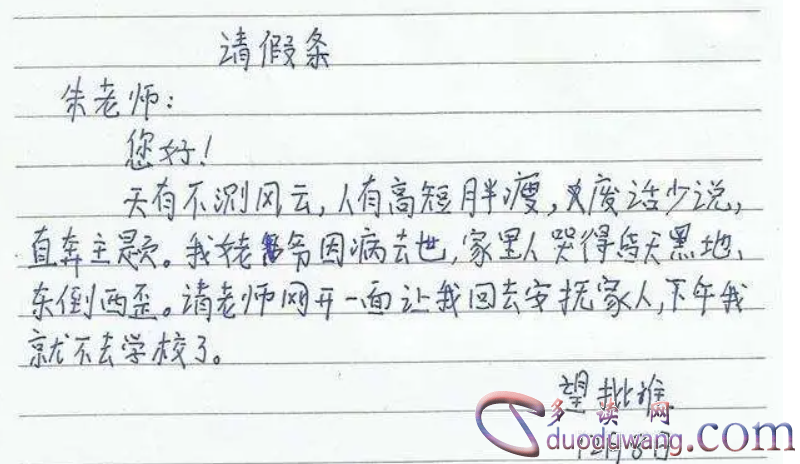 请假条
朱老师：
您好！
天有不测风云，人有高短胖瘦，废话少说，
直奔主题。我姥爷因病去世，家里人哭得昏天黑地、
东倒西歪。请老师网开一面让我回去安抚家人，下午我
就不去学校了。
望批准
多读网
duoduwang.com
12月8日